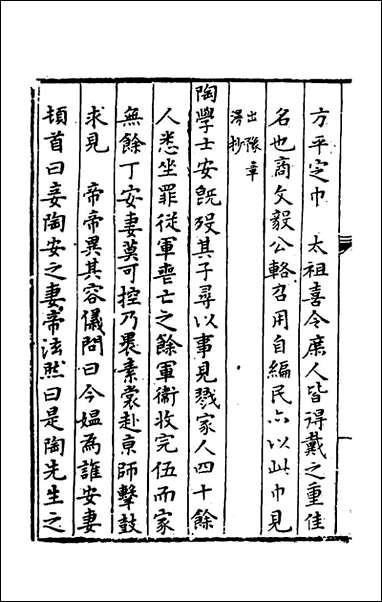 方平定巾　太祖喜令庶人皆得戴之重佳
名也商文毅公輅召用自編民亦以此巾見
出豫章
漫抄
陶學士安旣歿其子尋以事見戮家人四十餘
人悉坐罪從軍喪亡之餘軍衛收完伍而家
無餘丁安妻莫可控乃褁素裳赴京師擊鼓
求見　帝帝異其容儀問曰今媼為誰安妻
頓首曰妾陶安之妻帝泫然曰是陶先生之